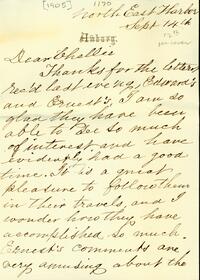 [1905]
1170
North East Harbor
Sept 14th
Asburg.
12th
per cover
Dear Challie
Thanks for the letters
rec'd last eveng, Edward's
and Ernest's, I am so
glad they have been
able to see so much
of interest and have
evidently had a good
time. It is a great
pleasure to follow them
in their travels, and I
wonder how they have
accomplished so much
Ernest's comments are
very amusing about the